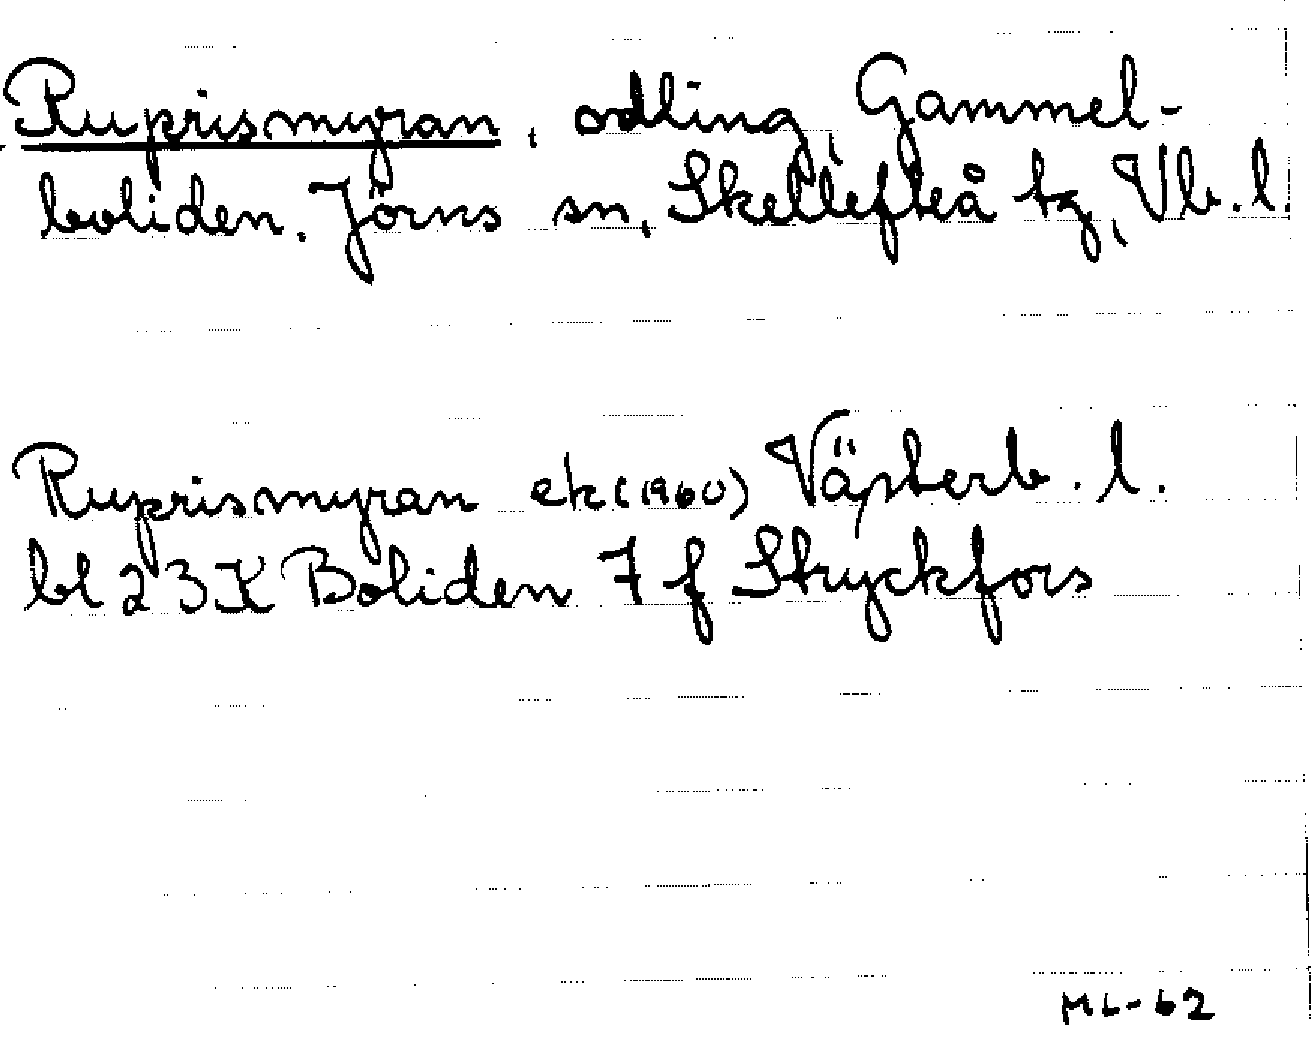 Ruprismyran, odling, Gammel-
boliden. Jörns sn, Skellefteå tg, Vb. l.
Ruprismyran ek (1960) Västerb. l.
bl 23K Boliden 7 f Stryckfors
ML-62